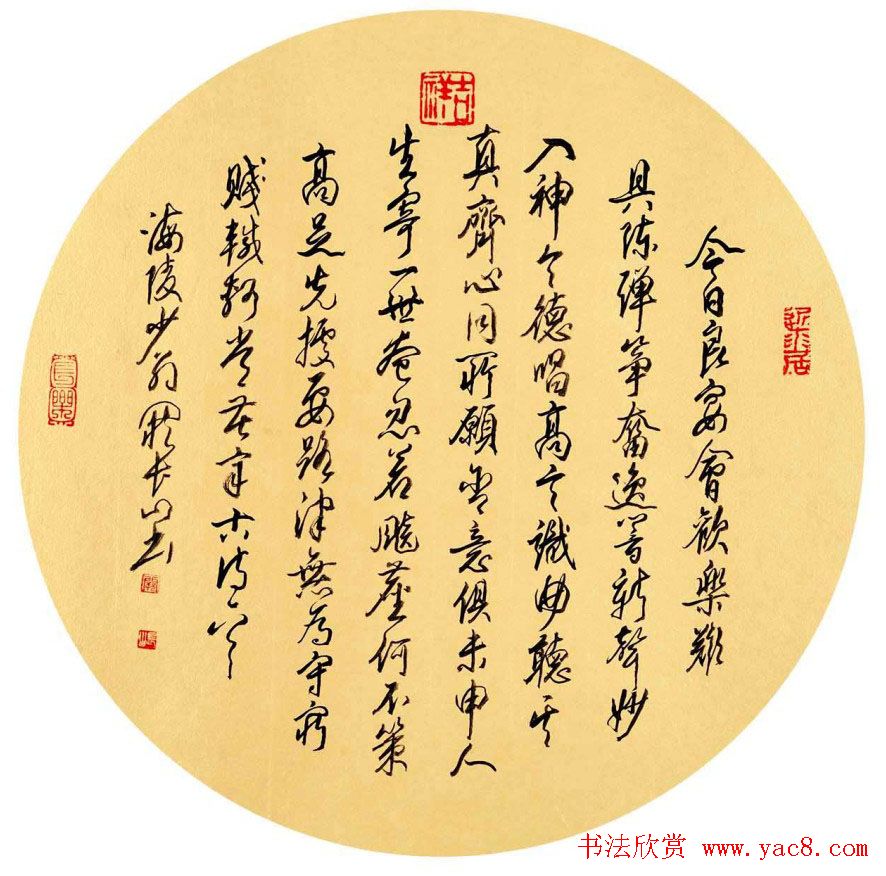 吉祥
今日良宴會歡樂難
具陳彈箏奮逸響新聲妙
入神令德唱高言識曲聽其
真齊心同所願含意俱未申人
生寄一世奄忽若飆塵何不策
高足先據要路津無為守窮
賤轗軻常苦辛古詩
海陵少翁闞長山書
书法欣赏 www.yac8.com